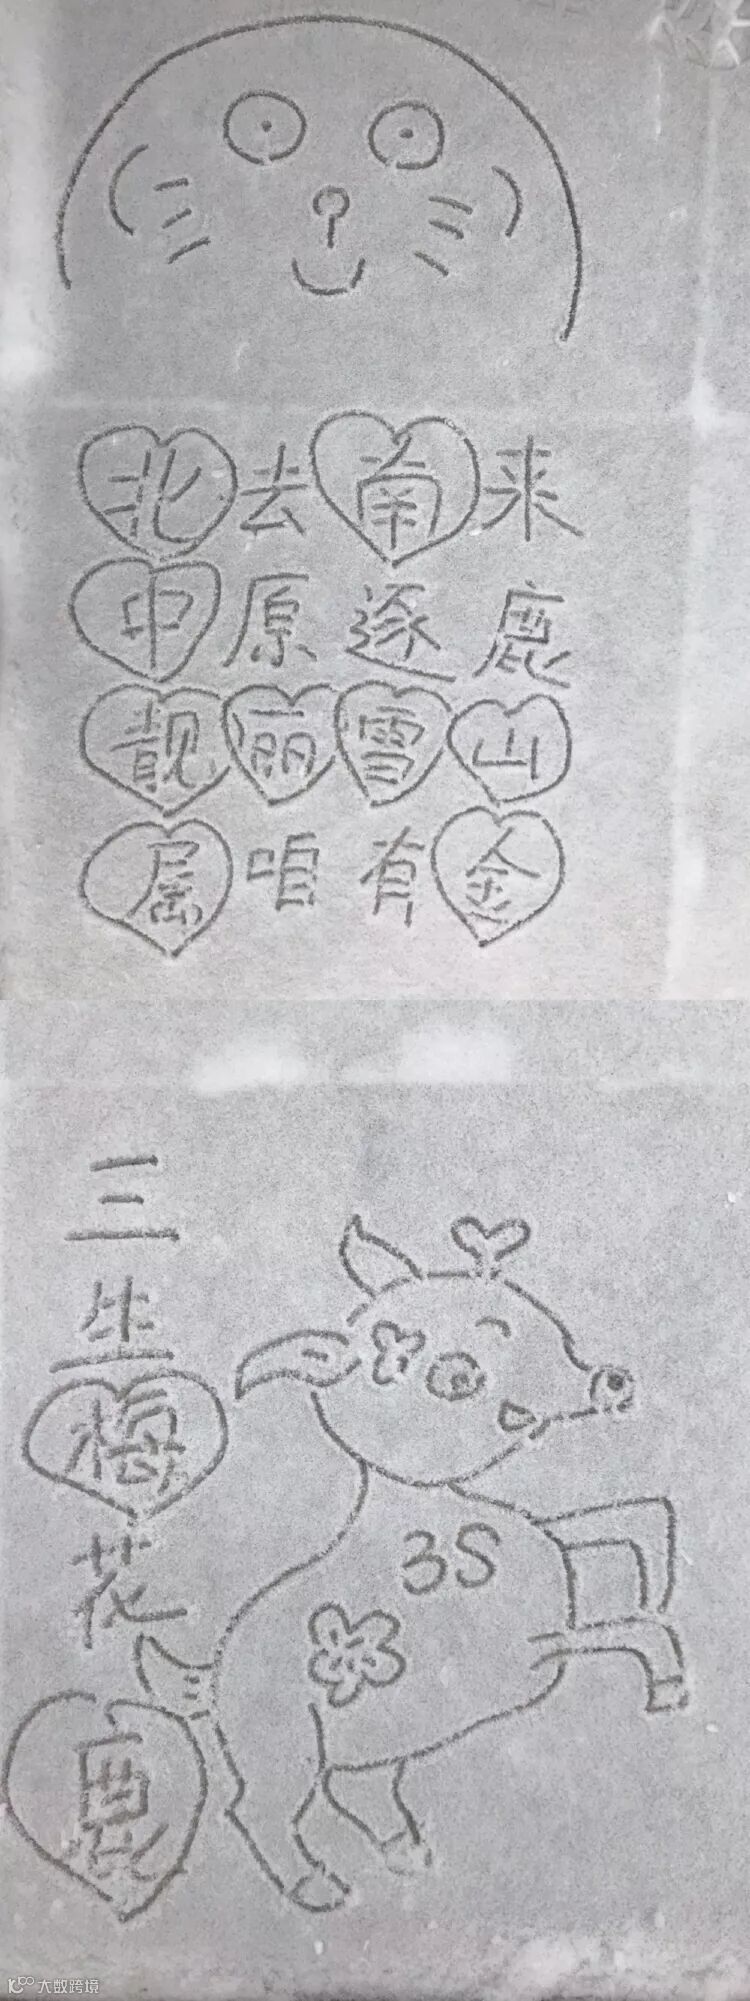 北去南来
中原逐鹿
靓丽雪山
屈咱有金
三
生
梅
花
鹿
3S
10100 大数跨境